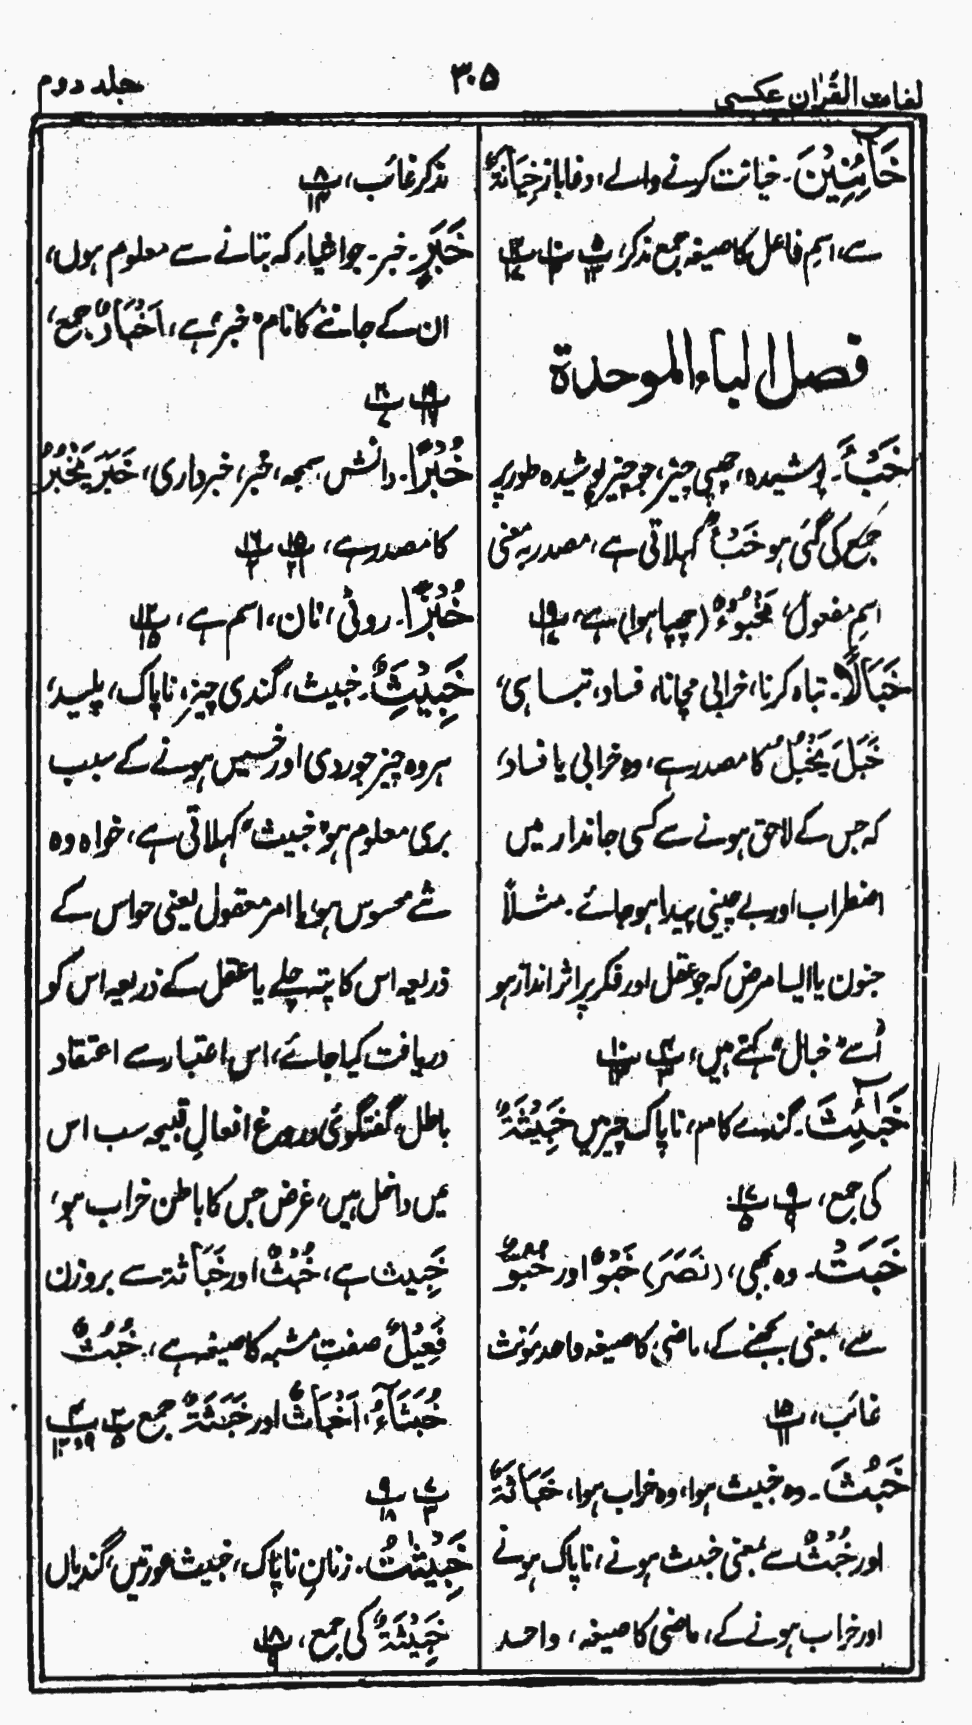 لغات القُرآن عکسی
۳۰۵
جلد دوم
خَآئِنِیْنَ۔ خیانت کرنے والے، دغاباز خِیَانَۃٌ
سے، اسم فاعل کا صیغہ جمع مذکر،
فصل الباء الموحدة
خَبْأَ۔ پوشیدہ، چھپی چیز، جو چیز پوشیدہ طور پر
جمع کی گئی ہو خَبْأٌ کہلاتی ہے، مصدر بہ معنی
اسمِ مفعول، مَخْبُوْءٌ (چھپا ہوا) ہے، پ۱۹
خَبَالًا۔ تباہ کرنا، خرابی مچانا، فساد، تباہی،
خَبَلَ یَخْبُلُ کا مصدر ہے، وہ خرابی یا فساد،
کہ جس کے لاحق ہونے سے کسی جاندار میں
اضطراب اور بے چینی پیدا ہو جائے۔ مثلاً
جنون یا ایسا مرض کہ جو عقل اور فکر پر اثر انداز ہو
اُسے "خبال" کہتے ہیں،
خَبٰٓئِثَ۔ گندے کام، ناپاک چیزیں خَبِیْثَۃٌ
کی جمع، پ۹
خَبَتْ۔ وہ بجھی، (نَصَرَ) خَبْوٌ اور خُبُوٌّ
سے، بمعنی بجھنے کے، ماضی کا صیغہ واحد مؤنث
غائب، پ۱۵
خَبُثَ۔ وہ خبیث ہوا، وہ خراب ہوا، خَبَاثَۃٌ
اور خُبْثٌ سے بمعنی خبیث ہونے، ناپاک ہونے
اور خراب ہونے کے، ماضی کا صیغہ، واحد
مذکر غائب، پ۸
خَبَرٍ۔ خبر۔ جو اشیاء کہ بتانے سے معلوم ہوں،
ان کے جاننے کا نام "خبر" ہے، اَخْبَارٌ جمع،
پ۱۹
خُبْرًا۔ دانش، سمجھ، خبر، خبرداری، خَبَرَ یَخْبُرُ
کا مصدر ہے، پ۱۵ پ۱۶
خُبْزًا۔ روٹی، نان، اسم ہے، پ۱۲
خَبِیْثٌ۔ خبیث، گندی چیز، ناپاک، پلید،
ہر وہ چیز جو ردی اور خسیس ہونے کے سبب
بری معلوم ہو "خبیث" کہلاتی ہے، خواہ وہ
شے محسوس ہو، یا امر معقول یعنی حواس کے
ذریعہ اس کا پتہ چلے یا عقل کے ذریعہ اس کو
دریافت کیا جائے، اس اعتبار سے اعتقاد
باطل، گفتگوئی دروغ افعالِ قبیحہ سب اس
میں داخل ہیں، غرض جس کا باطن خراب ہو،
خَبِیث ہے، خُبْثٌ اور خَبَاثَۃ سے بروزن
فَعِیْلٌ صفتِ مشبہ کا صیغہ ہے، خُبُثٌ
خُبَثَاءُ، اَخْبَاثٌ اور خَبَثَۃٌ جمع
پ۷ پ۹
خَبِیْثٰتُ۔ زنانِ ناپاک، خبیث عورتیں، گندیاں
خَبِیْثَۃٌ کی جمع، پ۱۸